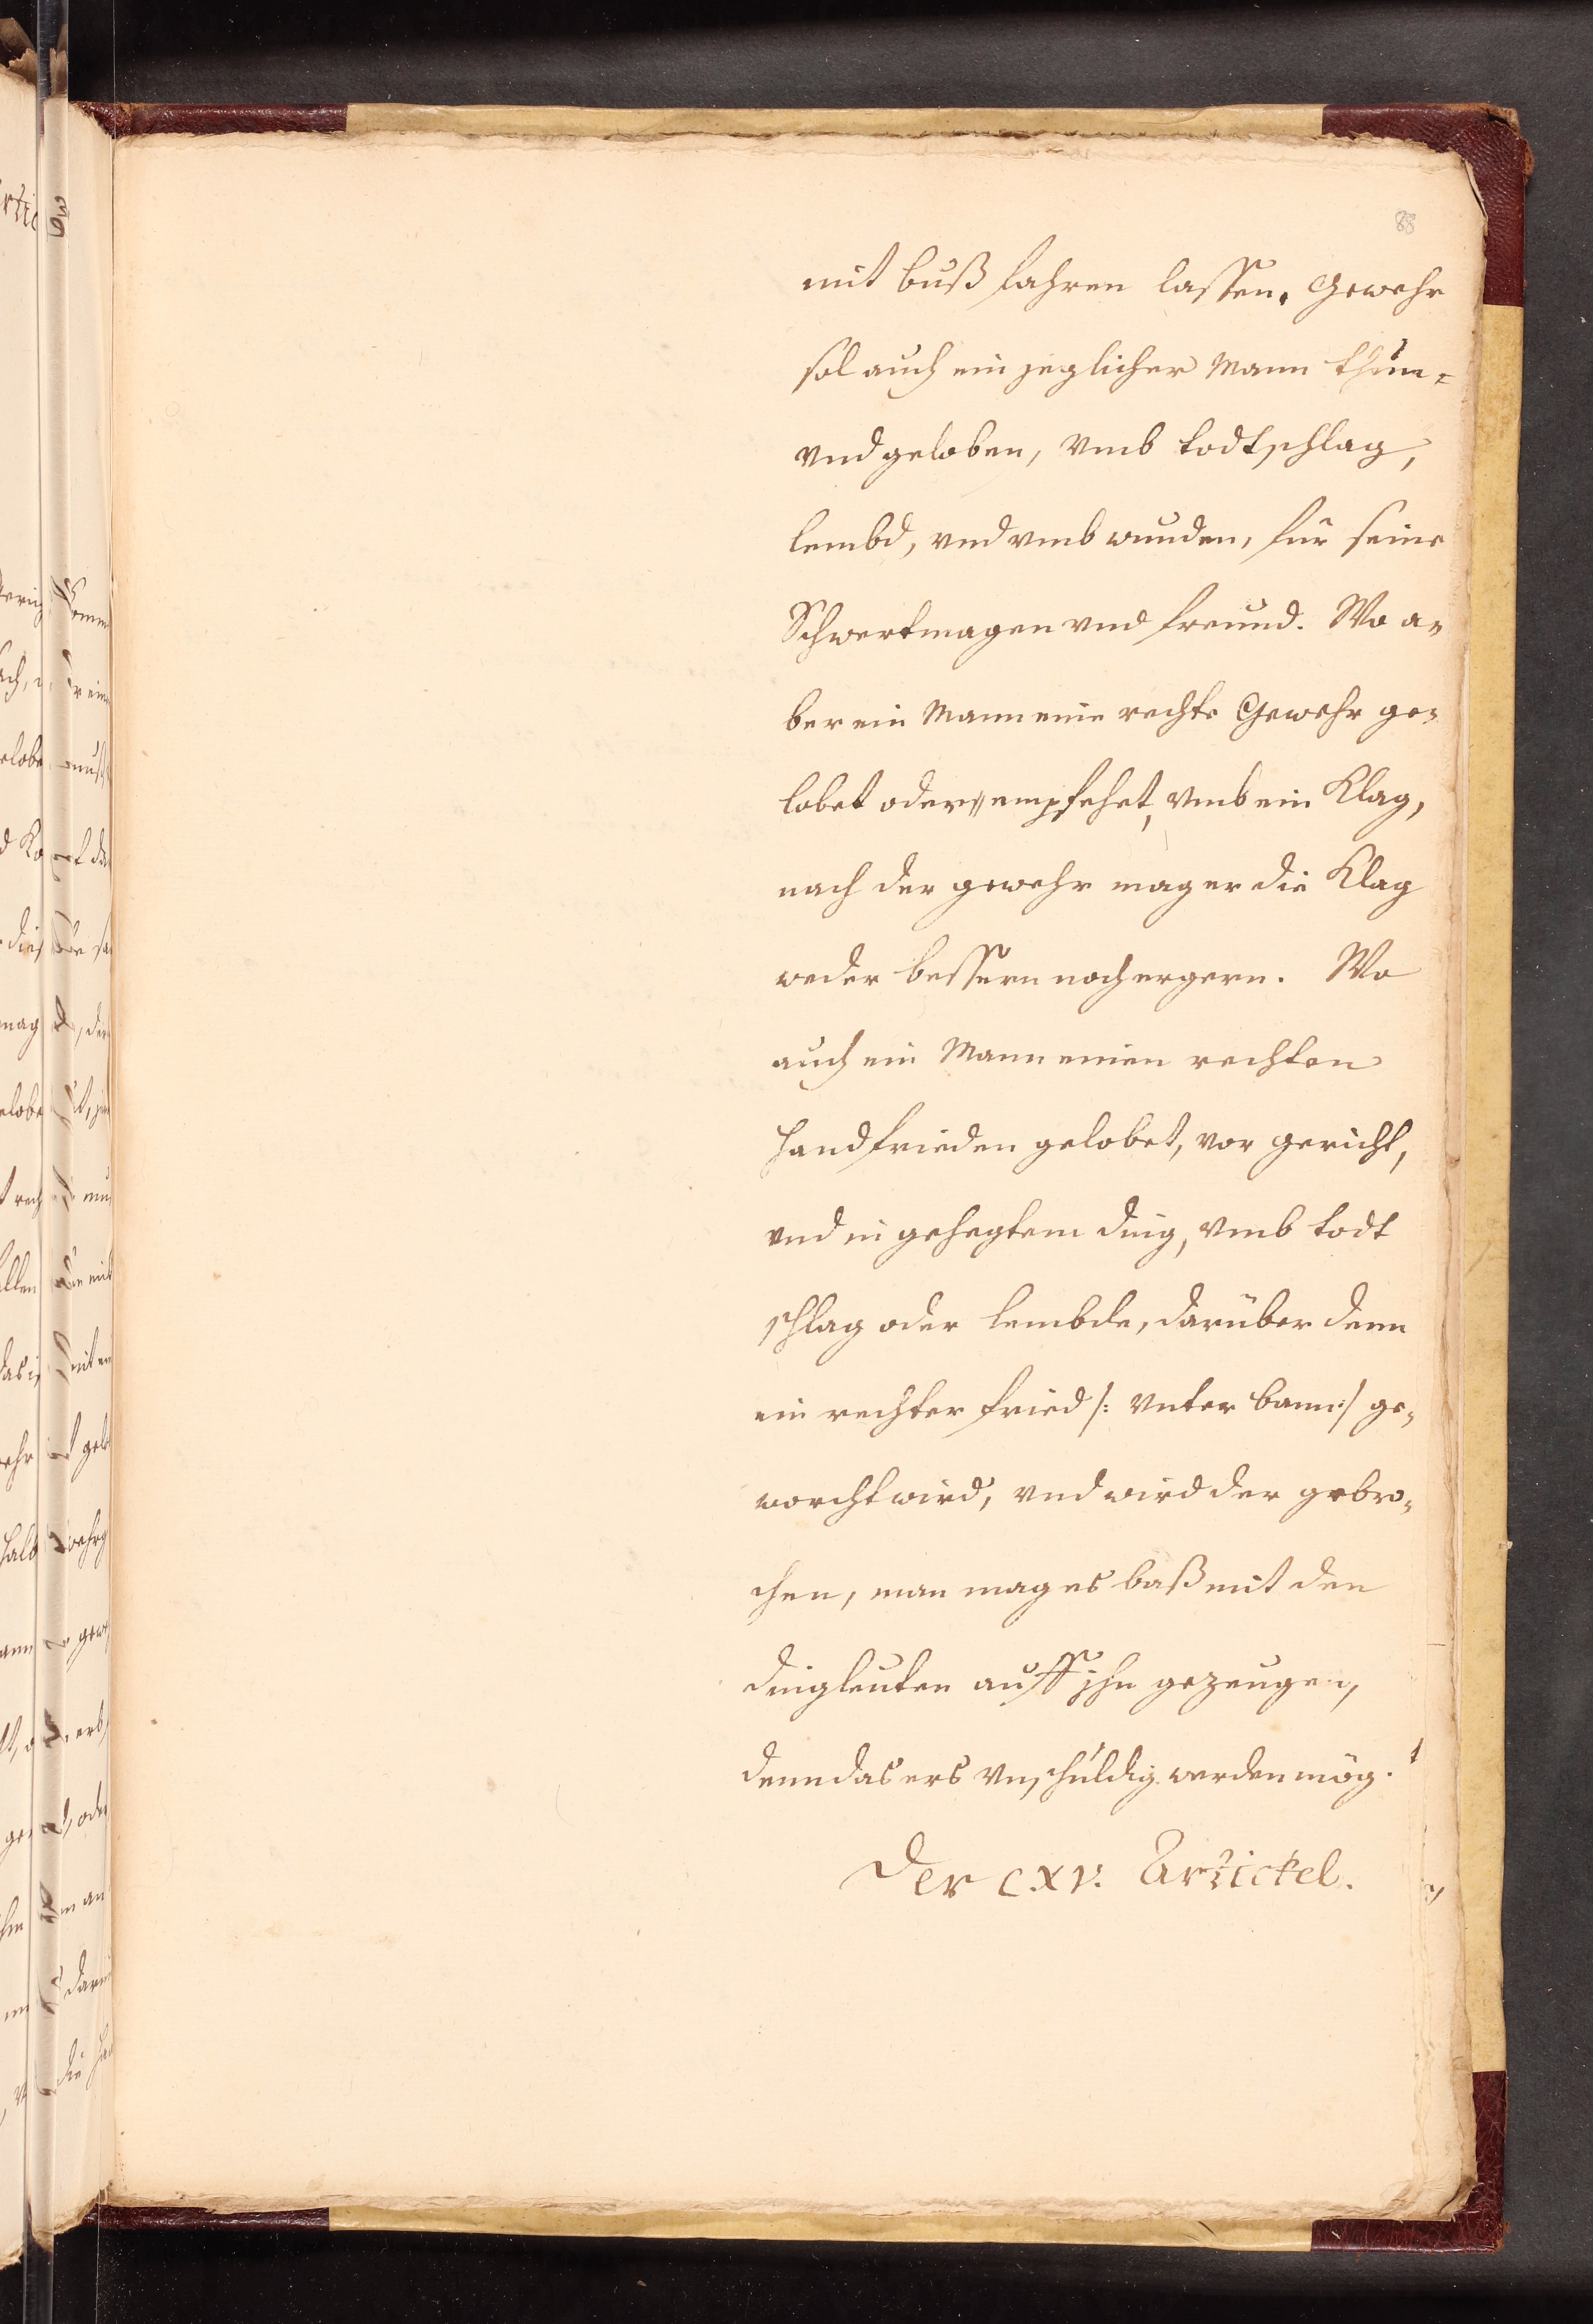 88
mit buß fahren lassen. Gewehr
sol auch ein jeglicher Mann thun=
vnd geloben, vmb todtschlag,
lembd, vnd vmb wunden, für seine
Schwertmagen vnd freund. Wo a=
ber ein Mann eine rechte Gewehr ge=
lobet oder empfehet, vmb ein Klag,
nach der gewehr mag er die Klag
weder bessern noch ergern. Wo
auch ein Mann einen rechten
Handfrieden gelobet, vor gericht,
vnd in gehegtem ding, vmb todt
schlag oder lembde, darüber denn
ein rechter fried /: vnter bann :/ ge=
worcht wird, vnd wird der gebro=
chen, man mag es baß mit den
dingleuten auff jhn gezeugen,
denn das ers vnschuldig werden mög.
Der C.XV. Artickel.